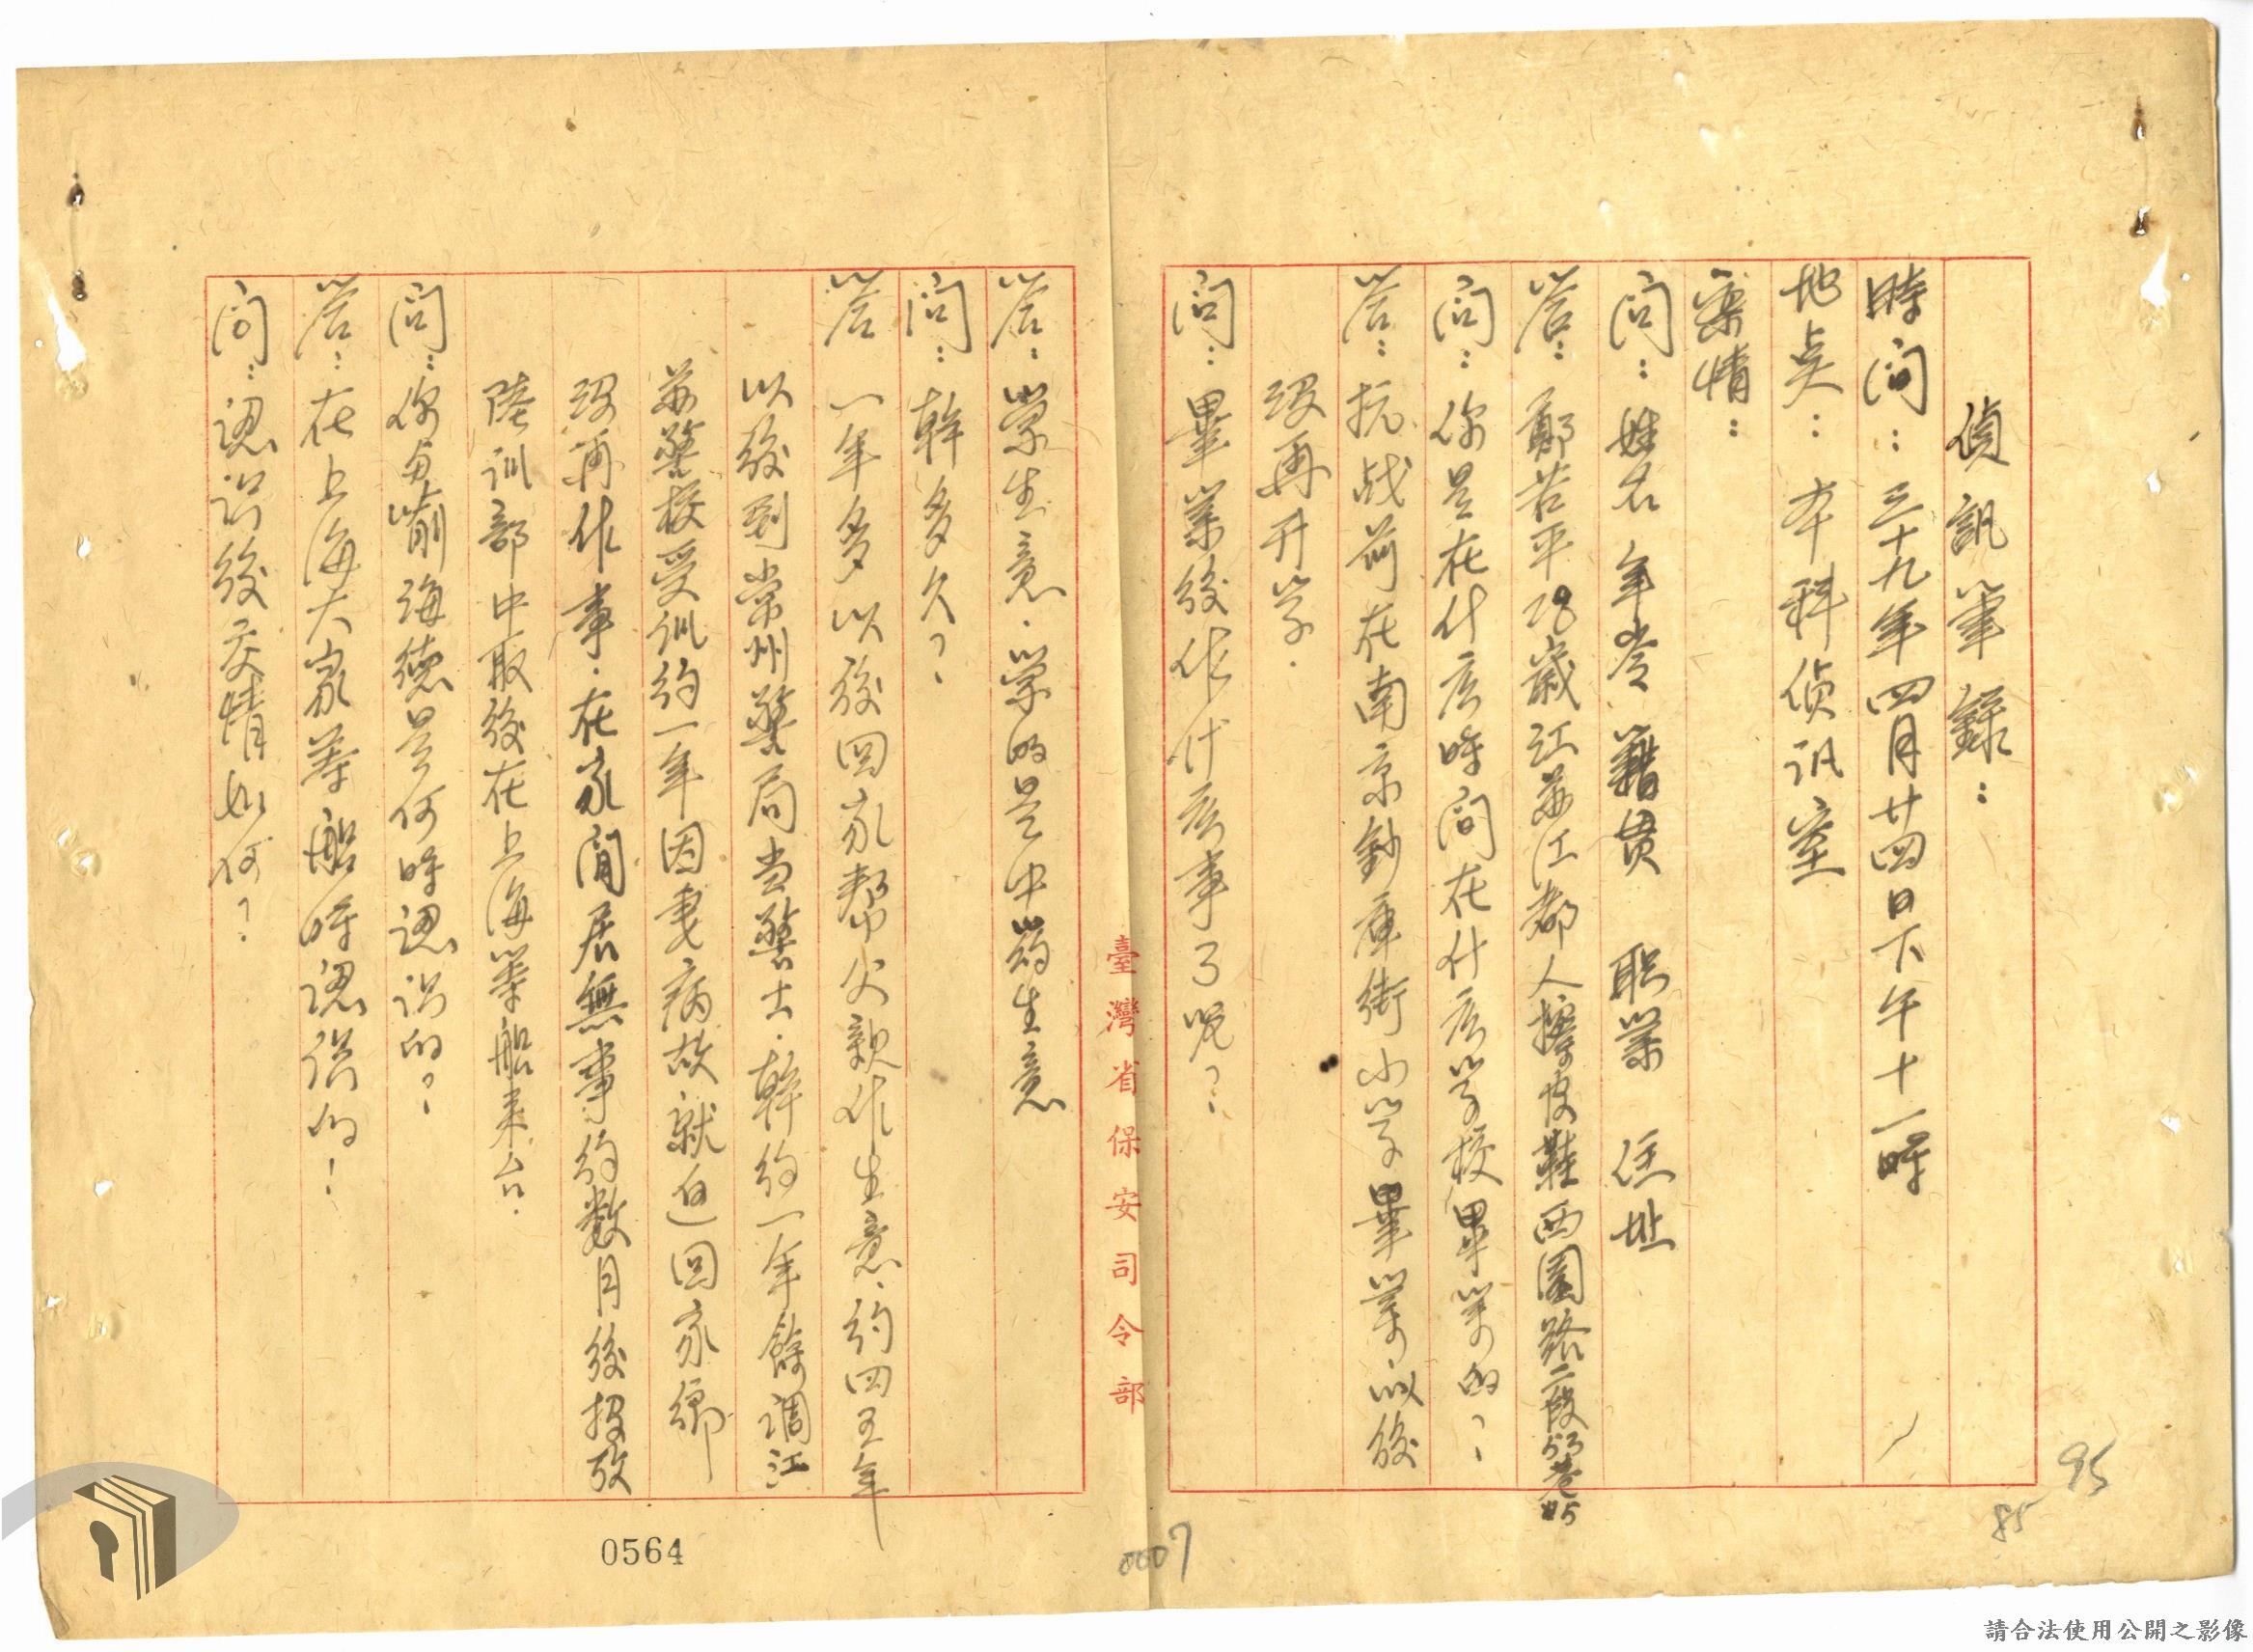 偵訊筆錄：
時间：三十九年四月廿四日下午十一時
地点：本科偵讯室
案情：
问：姓名 年岺 籍贯 职業 住址
答：鄭若平 28歲江苏江都人擦皮鞋西園路二段53巷45
问：你是在什広時间在什広学校畢業的？
答：抗战前在南京鈔庫街小学畢業，以後
沒再升学．
问：畢業後作什広事了呢？
臺灣省保安司令部
答：学生意．学的是中药生意
问：幹多久？
答 一年多以後回家帮父親作生意．約四五年
以後到常州警局当警士．幹約一年餘调江
苏警校受训約一年因妻病故就返回家鄉
沒再作事．在家閒居無事約数月後投效
陸训部 中取後在上海等船来台．
问：你与喻海德是何時認识的？
答：在上海大家等船時認識的！
问：認识後交情如何？
0564
0007
95
85
請合法使用公開之影像